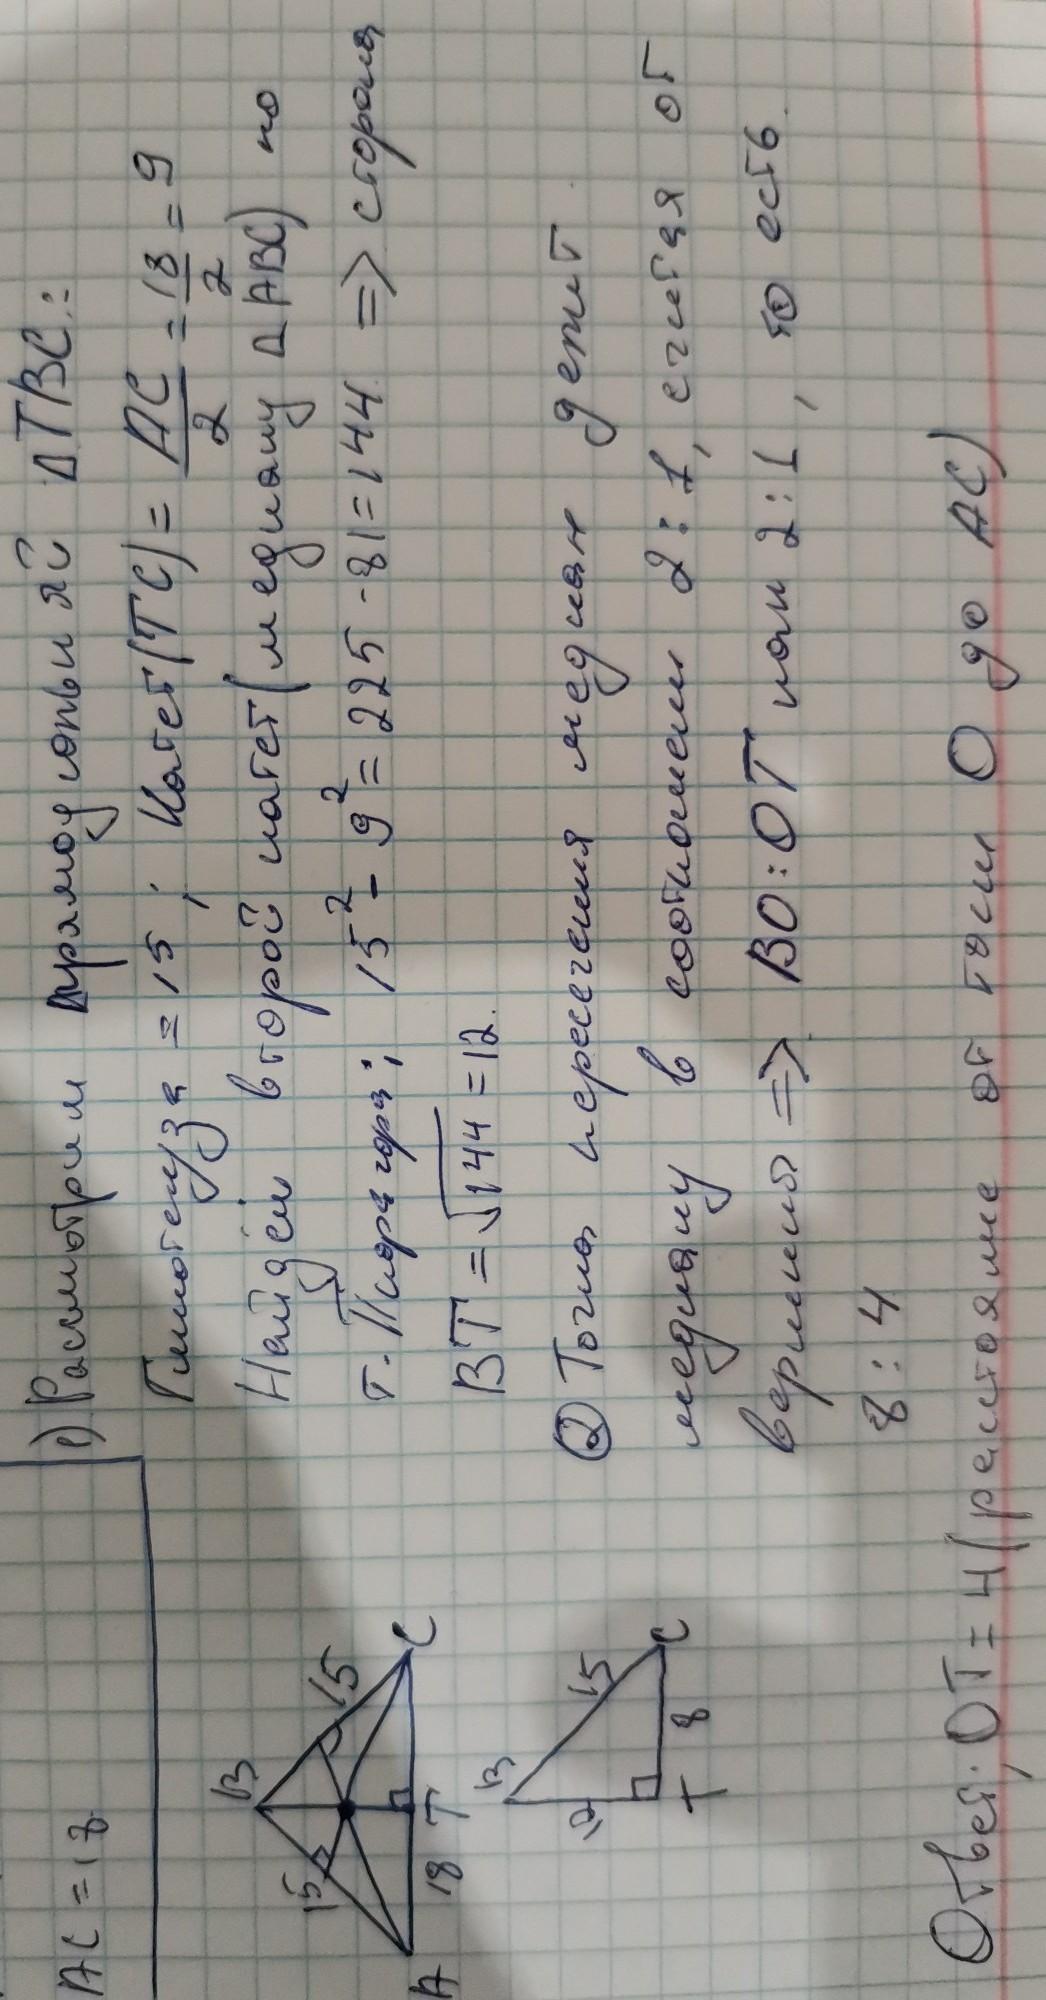 AC = 18
1) Рассмотрим прямоугольный ΔTBC:
Гипотенуза = 15 ; Катет(TC) = AC/2 = 18/2 = 9
Найдём второй катет(медиану ΔABC) по
т. Пифагора; 15² - 9² = 225 - 81 = 144 => сторона
BT = √144 = 12.
② Точка пересечения медиан делит
медиану в соотношении 2 : 1, считая от
вершины => BO : OT как 2 : 1, то есть
8 : 4
B
15
15
A
18
T
C
B
12
15
T
8
C
Ответ: OT = 4 (расстояние от точки O до AC)